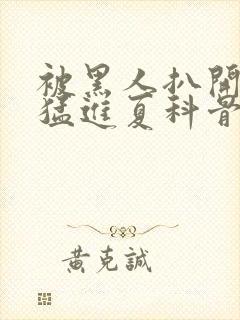 被黑人扒開
猛進夏科普
黃克誠